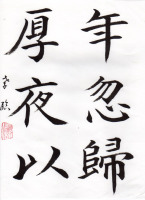 年忽歸
厚夜以